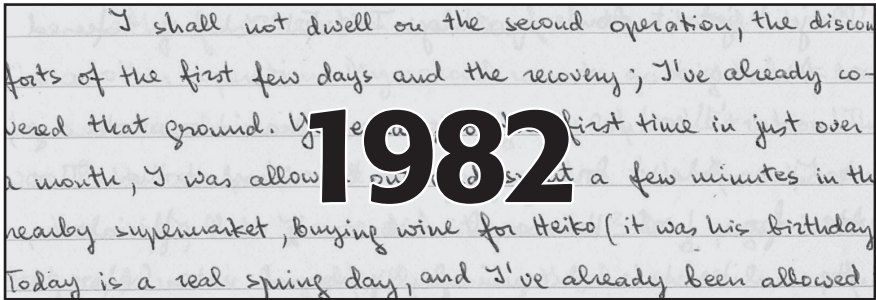 I shall not dwell on the second operation, the discom
forts of the first few days and the recovery; I've already co-
vered that ground. first time in just over
1982
a month, I was a few minutes in th
nearby supermarket, buying wine for Heiko (it was his birthday
Today is a real spring day, and I've already been allowed